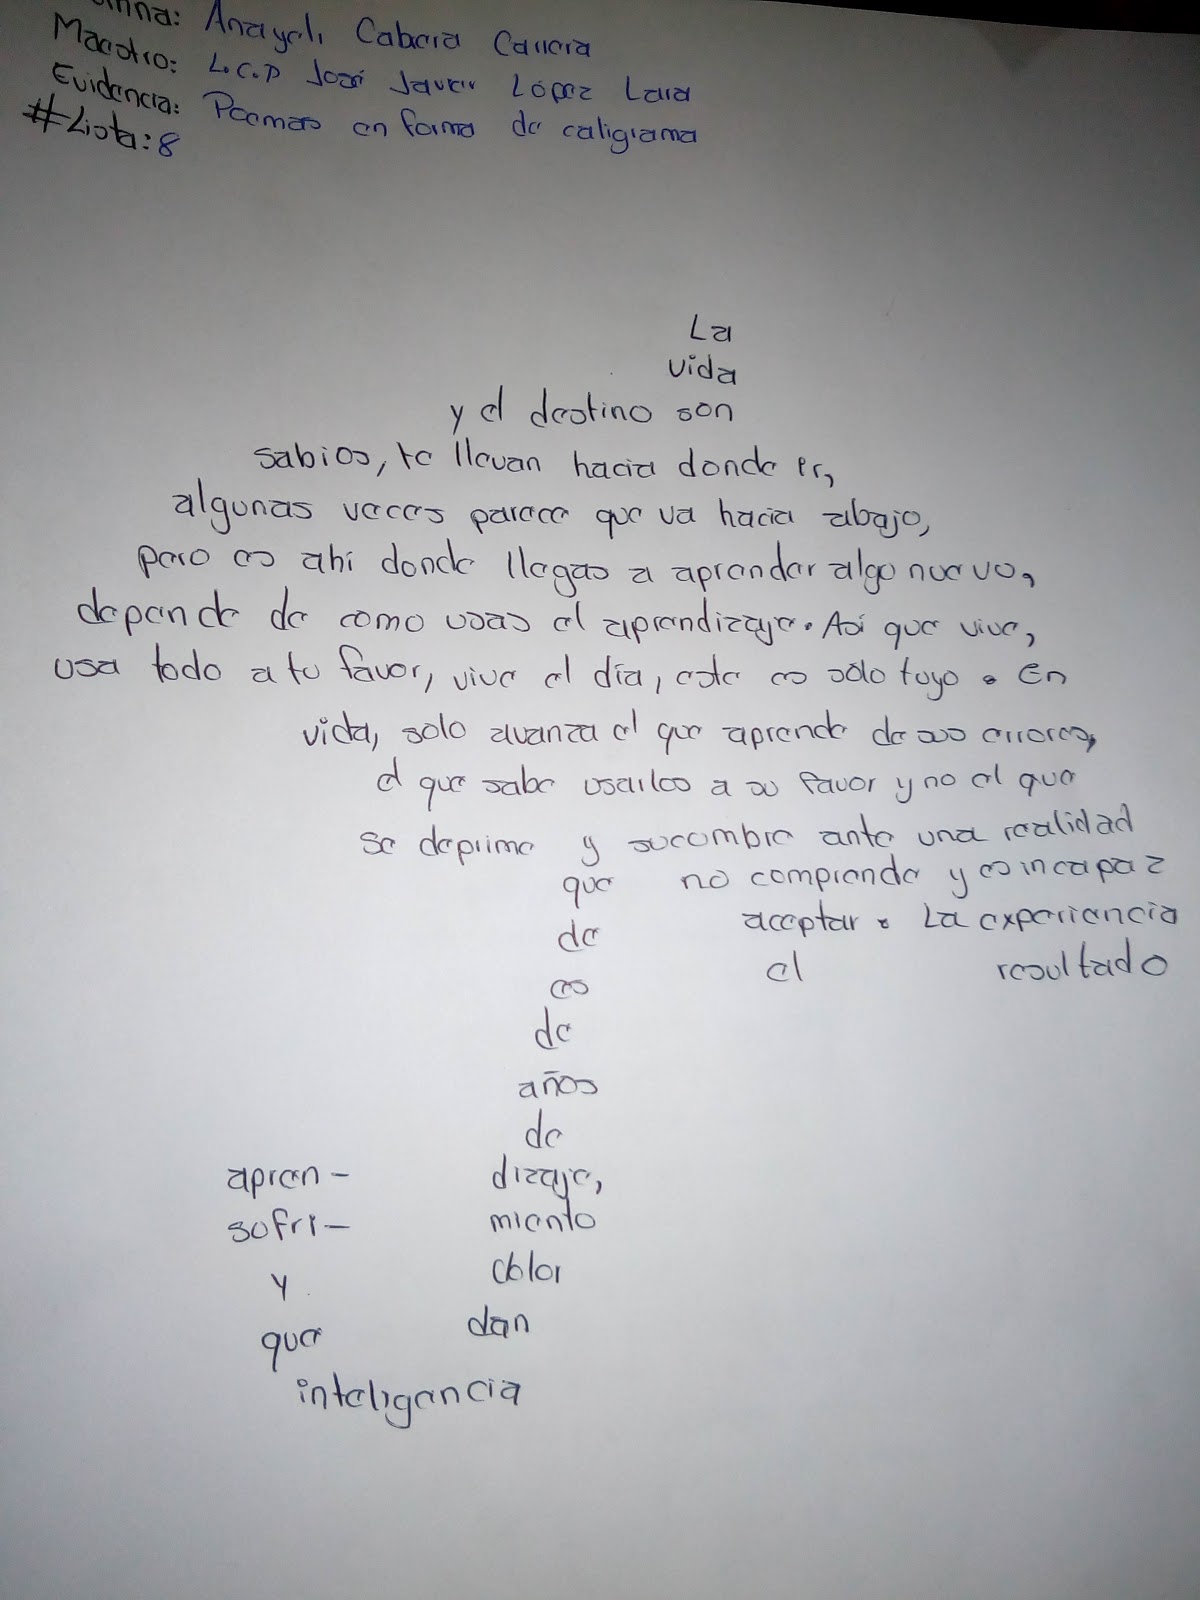 Anayeli Cabrera Carrera
Maestro: L.C.P José Javier López Lara
Evidencia: Poemas en forma de caligrama
#Lista: 8
La
vida
y el destino son
sabios, te llevan hacia donde ir,
algunas veces parece que va hacia abajo,
pero es ahí donde llegas a aprender algo nuevo,
depende de como usas el aprendizaje. Así que vive,
usa todo a tu favor, vive el día, este es sólo tuyo. En
vida, solo avanza el que aprende de sus errores,
el que sabe usarlos a su favor y no el que
se deprime y sucumbre ante una realidad
que no comprende y es incapaz
de aceptar. La experiencia
es el resultado
de
años
de
apren- dizaje,
sofri- miento
y dolor
que dan
inteligencia